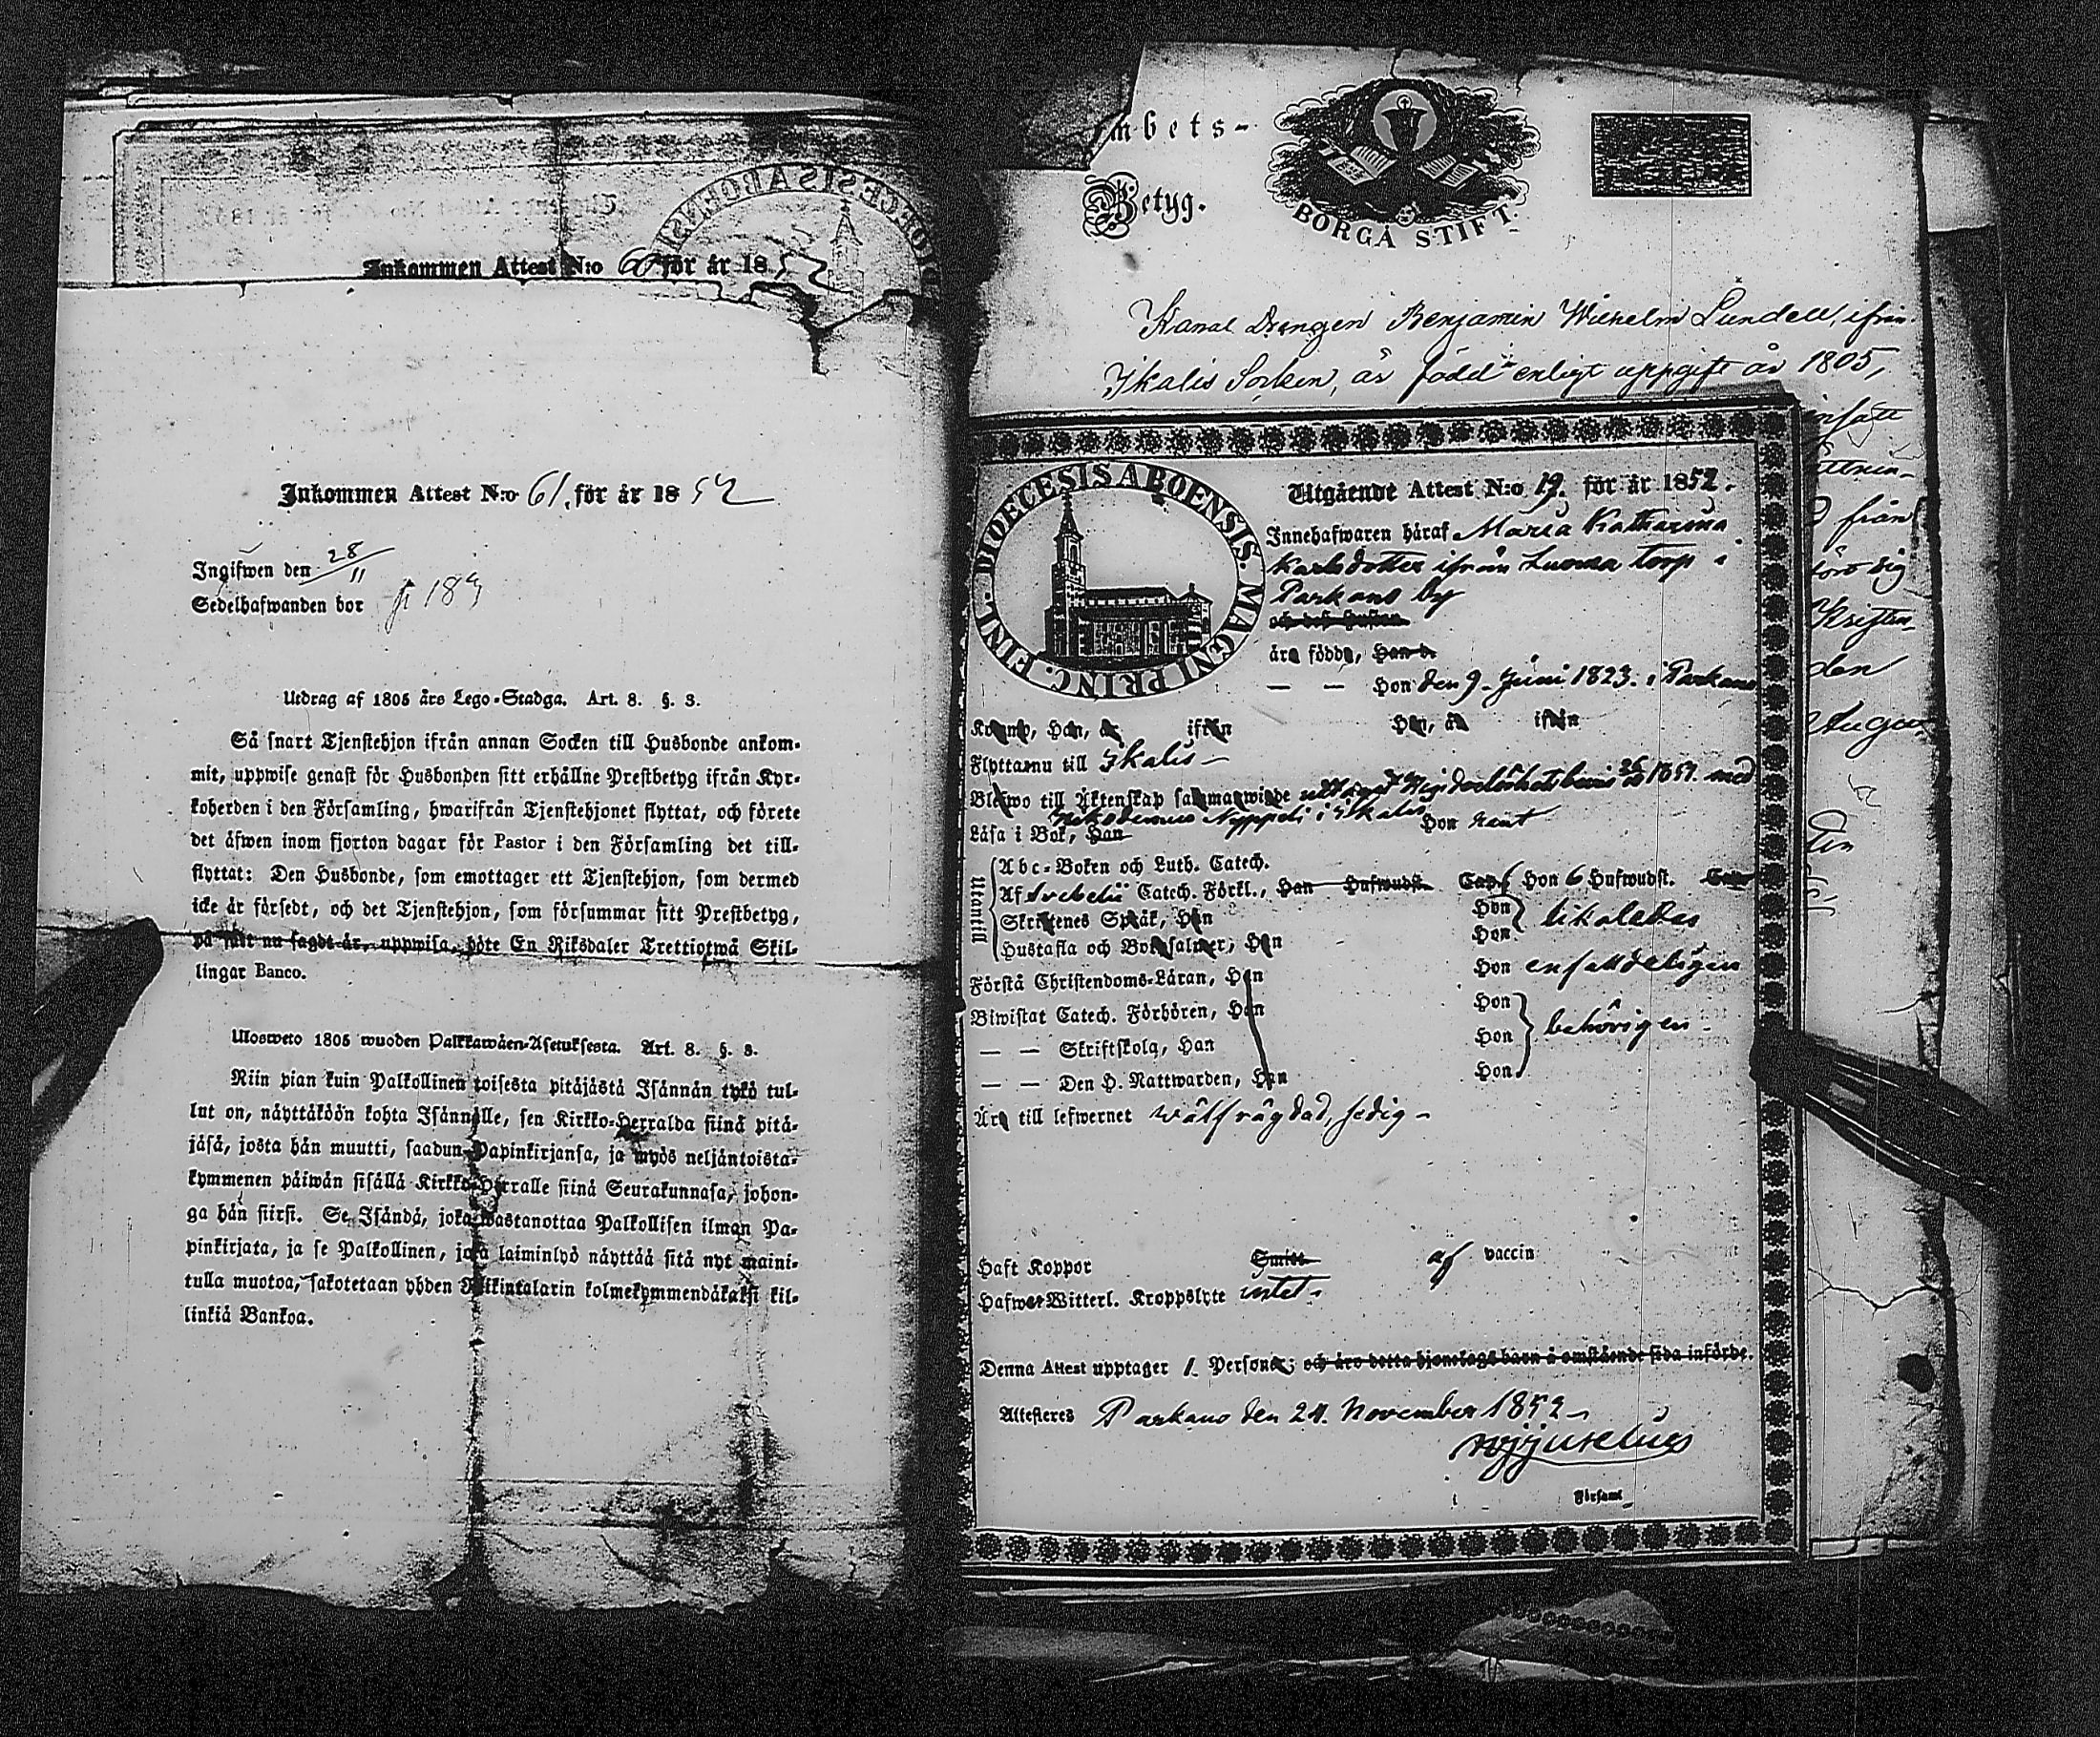 Inkommen Attest N:o 60 för år 1852
Inkommen Attest N:o 61. för år 1852
Ingifwen den 28/11
Sedelhafwanden bor
Utdrag af 1805 års Lego-Stadga. Art. 8. §. 3.
Så snart Tjenstehjon ifrån annan Socken till Husbonde ankom-
mit, uppwise genast för Husbonden sitt erhållne Prestbetyg ifrån Kyr-
koherden i den Församling, hwarifrån Tjenstehjonet flyttat, och förete
det äfwen inom fjorton dagar för Pastor i den Församling det till-
flyttat: Den Husbonde, som emottager ett Tjenstehjon, som dermed
icke är försedt, och det Tjenstehjon, som försummar sitt Prestbetyg,
på sätt nu sagdt är, uppwisa, böte En Riksdaler Trettiotwå Skil-
lingar Banco.
Ulosweto 1805 wuoden Palkkawäen-Asetuksesta. Art. 8. §. 3.
Niin pian kuin Palkollinen toisesta pitäjästä Isännän tykö tul-
lut on, näyttäköön kohta Isännälle, sen Kirkko-Herralda siinä pitä-
jäsä, josta hän muutti, saadun Papinkirjansa, ja myös neljäntoista-
kymmenen päiwän sisällä Kirkko-Herralle siinä Seurakunnasa, johon-
ga hän siirsi. Se Isändä, joka wastanottaa Palkollisen ilman Pa-
pinkirjata, ja se Palkollinen, joka laiminlyö näyttää sitä nyt maini-
tulla muotoa, sakotetaan yhden Riikintalarin kolmekymmendäkaksi kil-
linkiä Bankoa.
mbets-
Betyg.
BORGÅ STIFT.
Kanal Drengen Benjamin Wilhelm Lundell, ifrån
Ikalis Socken, är född enligt uppgift år 1805,
från
sig
den
DIOECESIS ABOENSIS. MAGNI PRINC. FINL.
Utgående Attest N:o 19. för år 1852.
Innehafwaren häraf Maria Katharina
Karlsdotter ifrån Luoma torp i
Parkano by
och des Hustru
äro födde, Han d.
— — Hon den 9. Juni 1823. i Parkano
Komne, Han, år ifrån Hon, år ifrån
Flyttar nu till Ikalis —
Blefwo till Äktenskap sammanwigde 1851. med
Nikodemus i Ikalis
Läsa i Bok, Han Hon rent
Utantill
Abc-Boken och Luth. Catech.
Af Svebelii Catech. Förkl., Han Hufwudst. Cap. Hon 6 Hufwudst.
Skriftenes Språk, Han Hon likaledes
Hustafla och Botpsalmer, Han Hon
Förstå Christendoms-Läran, Han Hon enfalldeligen
Biwistat Catech. Förhören, Han Hon
— — Skriftskola, Han Hon behörigen
— — Den H. Nattwarden, Han Hon
Äro till lefwernet wälfrägdad, sedig —
Haft Koppor Smitt. af vaccin
Hafwer Witterl. Kroppslyte intet.
Denna Attest upptager 1. Personer; och äro detta hjonelags barn å omstående sida införde.
Attesteres Parkano den 24. November 1852
i Församl.